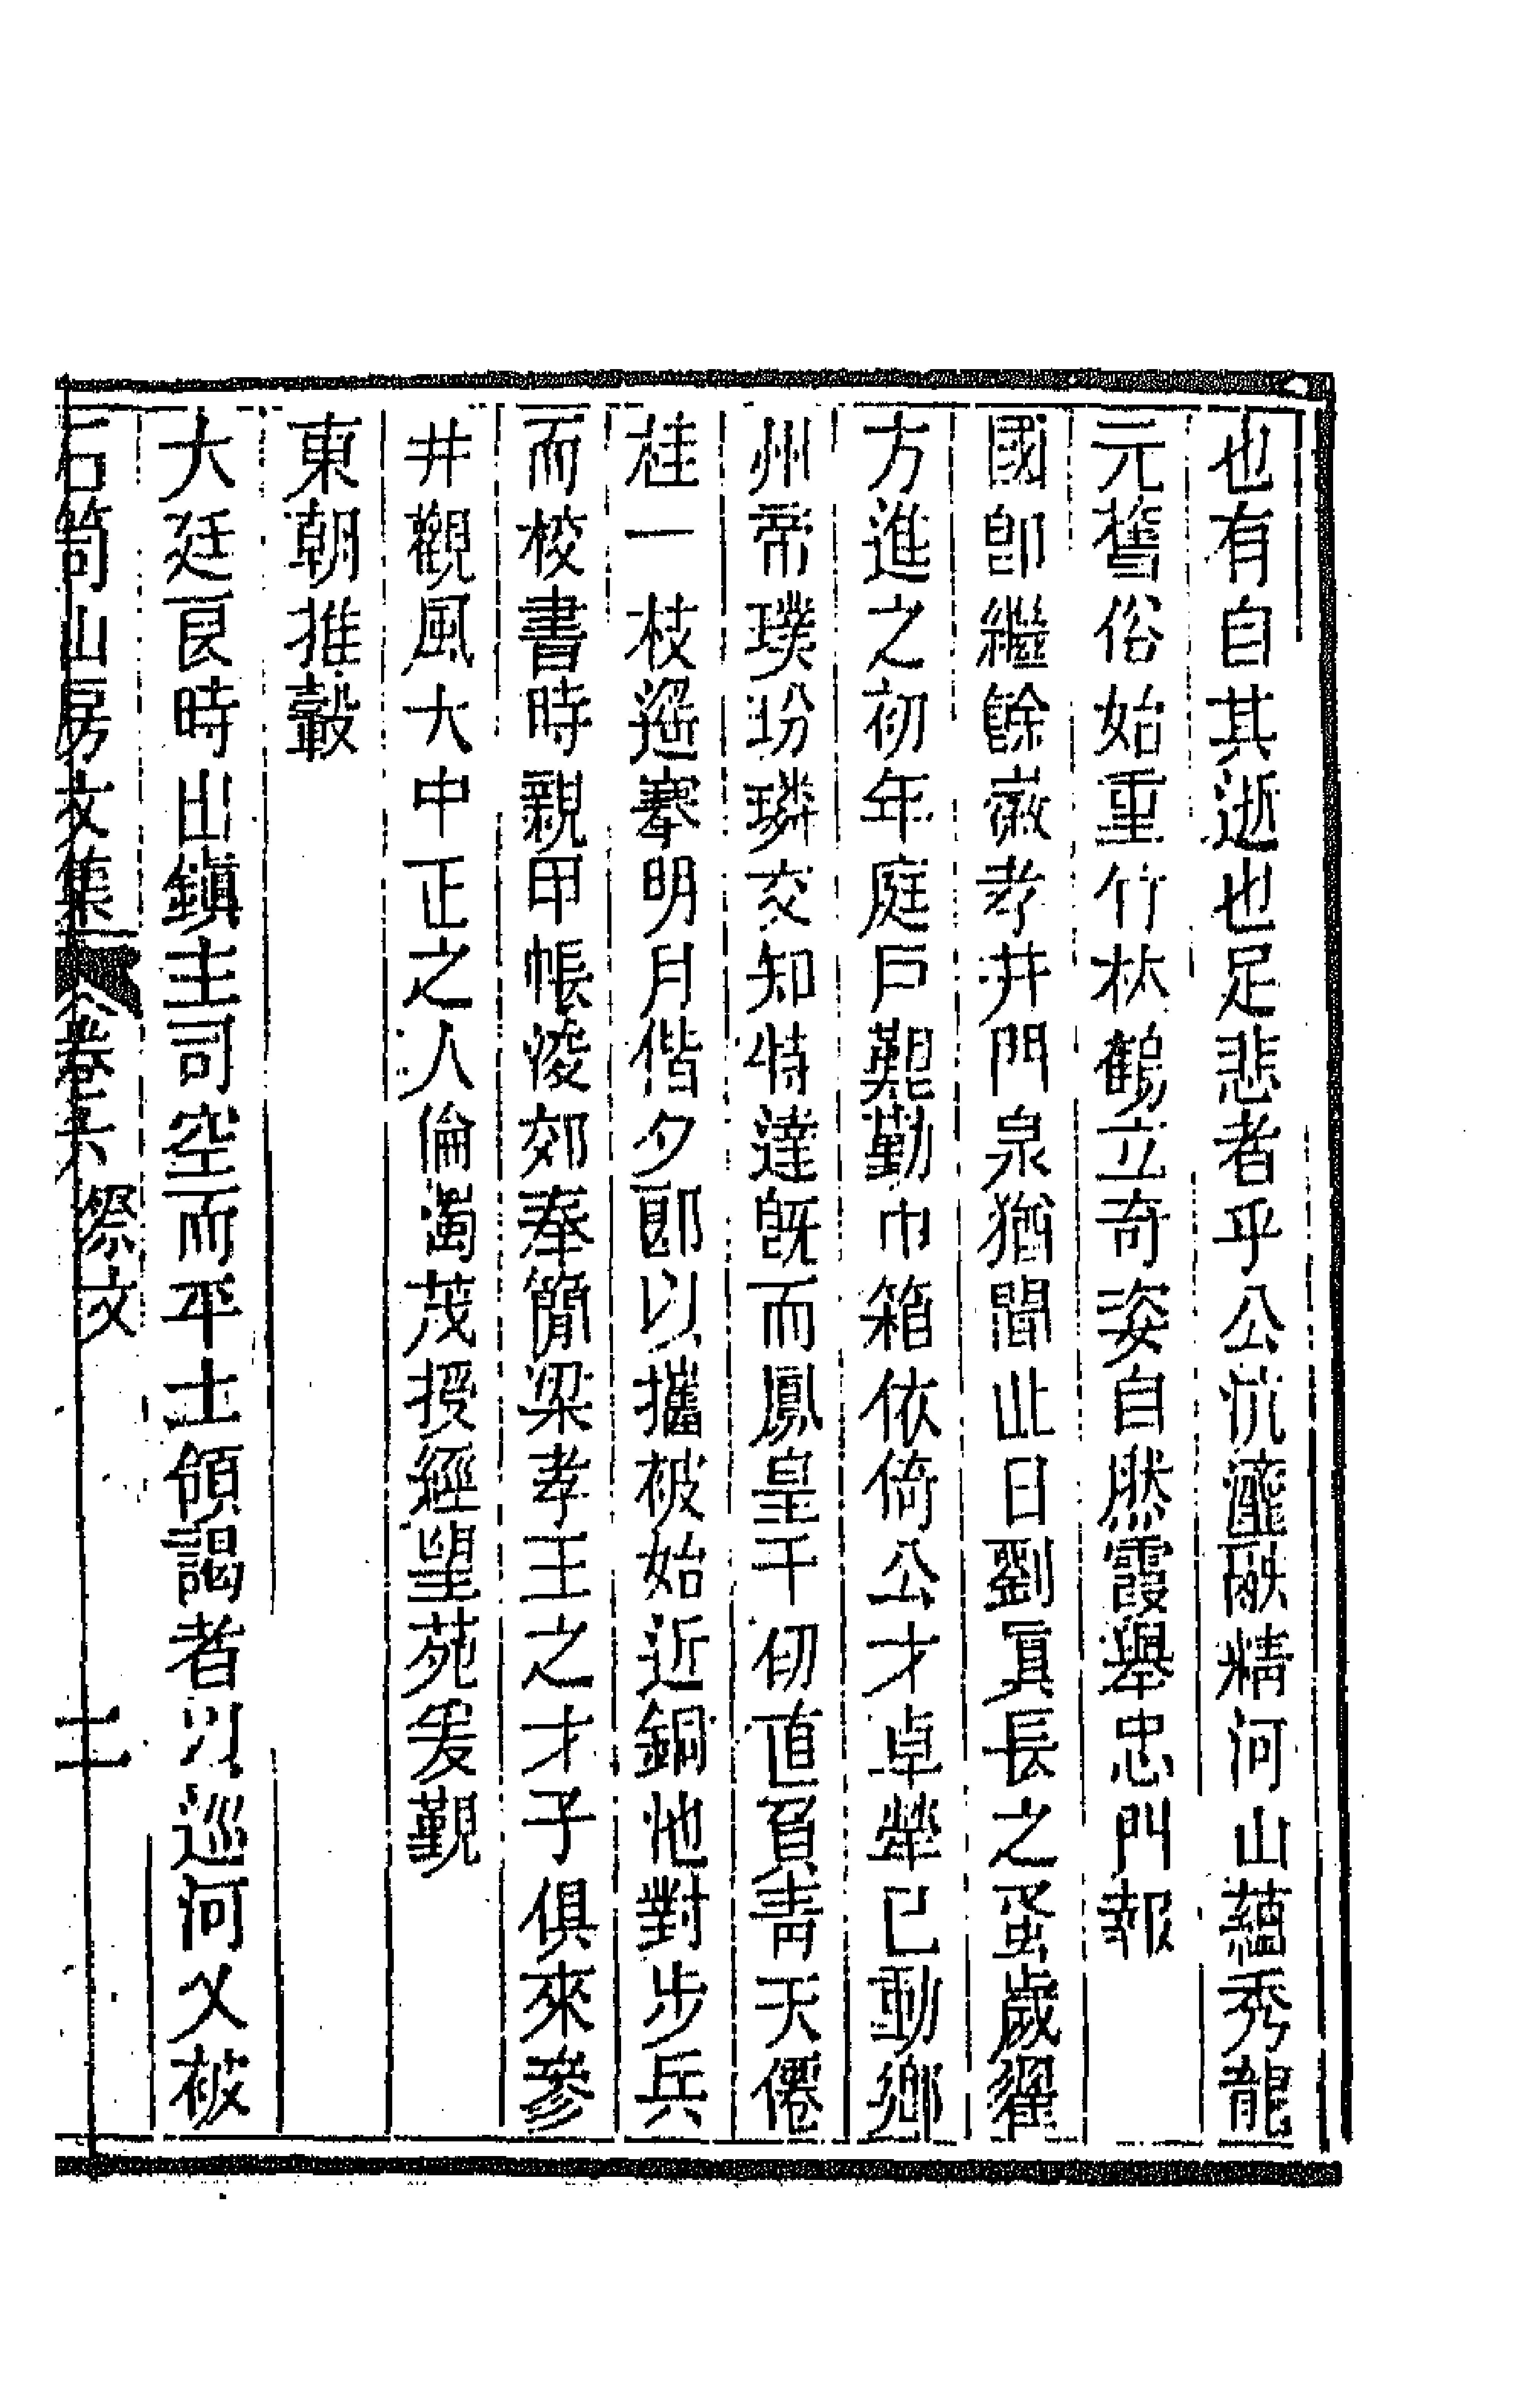 也有自其逝也足悲者乎公沆瀣融精河山蘊秀龍
元舊俗始重竹林鶴立奇姿自然霞舉忠門報
國卽繼餘徽孝井門泉猶聞此日劉眞長之蚤歲翟
方進之初年庭戶艱勤巾箱依倚公才卓犖已動鄉
州帝璞玢璘交知特達旣而鳳皇千仞直負靑天僊
桂一枝遥搴明月偕夕郞以攜被始近銅池對步兵
而校書時親甲帳淩郊奉簡梁孝王之才子俱來參
井觀風大中正之人倫濁茂授經望苑爰觀
東朝推轂
大廷良時出鎭主司空而平土領謁者以巡河乂被
石笥山房文集 卷六 祭文 十二